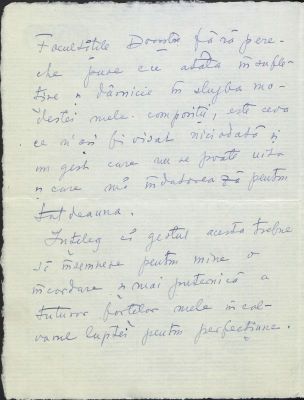 Facultățile Doastră fără pere-
che puse cu atâta însufle-
țire și dărnicie în slujba mo-
destei mele compoziții, este ceva
ce n'aș fi visat niciodată și
un gest care nu se poate uita
și care mă îndatorează pentru
totdeauna.
Înțeleg că gestul acesta trebue
să însemneze pentru mine o
încordare și mai puternică a
tuturor forțelor mele în cal-
varul luptei pentru perfecțiune.